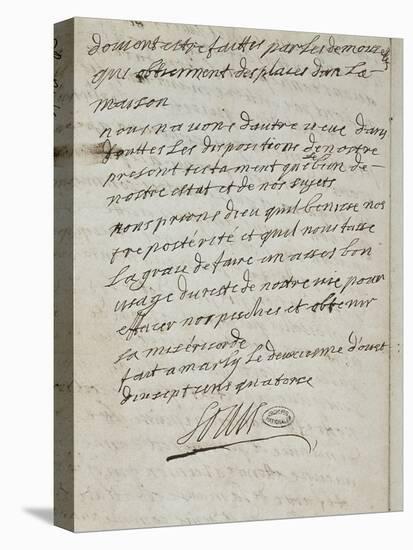 doivent estre faittes par les demoiselles
qui obtiennent des places dans la
maison
nous navons dautre veue dans
touttes les dispositions de nostre
present testament que le bien de
nostre estat et de nos sujets
nous prions dieu quil benisse nos
tre postérité et quil nous fasse
la grace de faire un asses bon
usage du reste de nostre vie pour
effacer nos peschés et obtenir
sa miséricorde
fait a marly le deuxiesme daoust
dixsept cens quatorse
Louis
ARCHIVES
NATIONALES